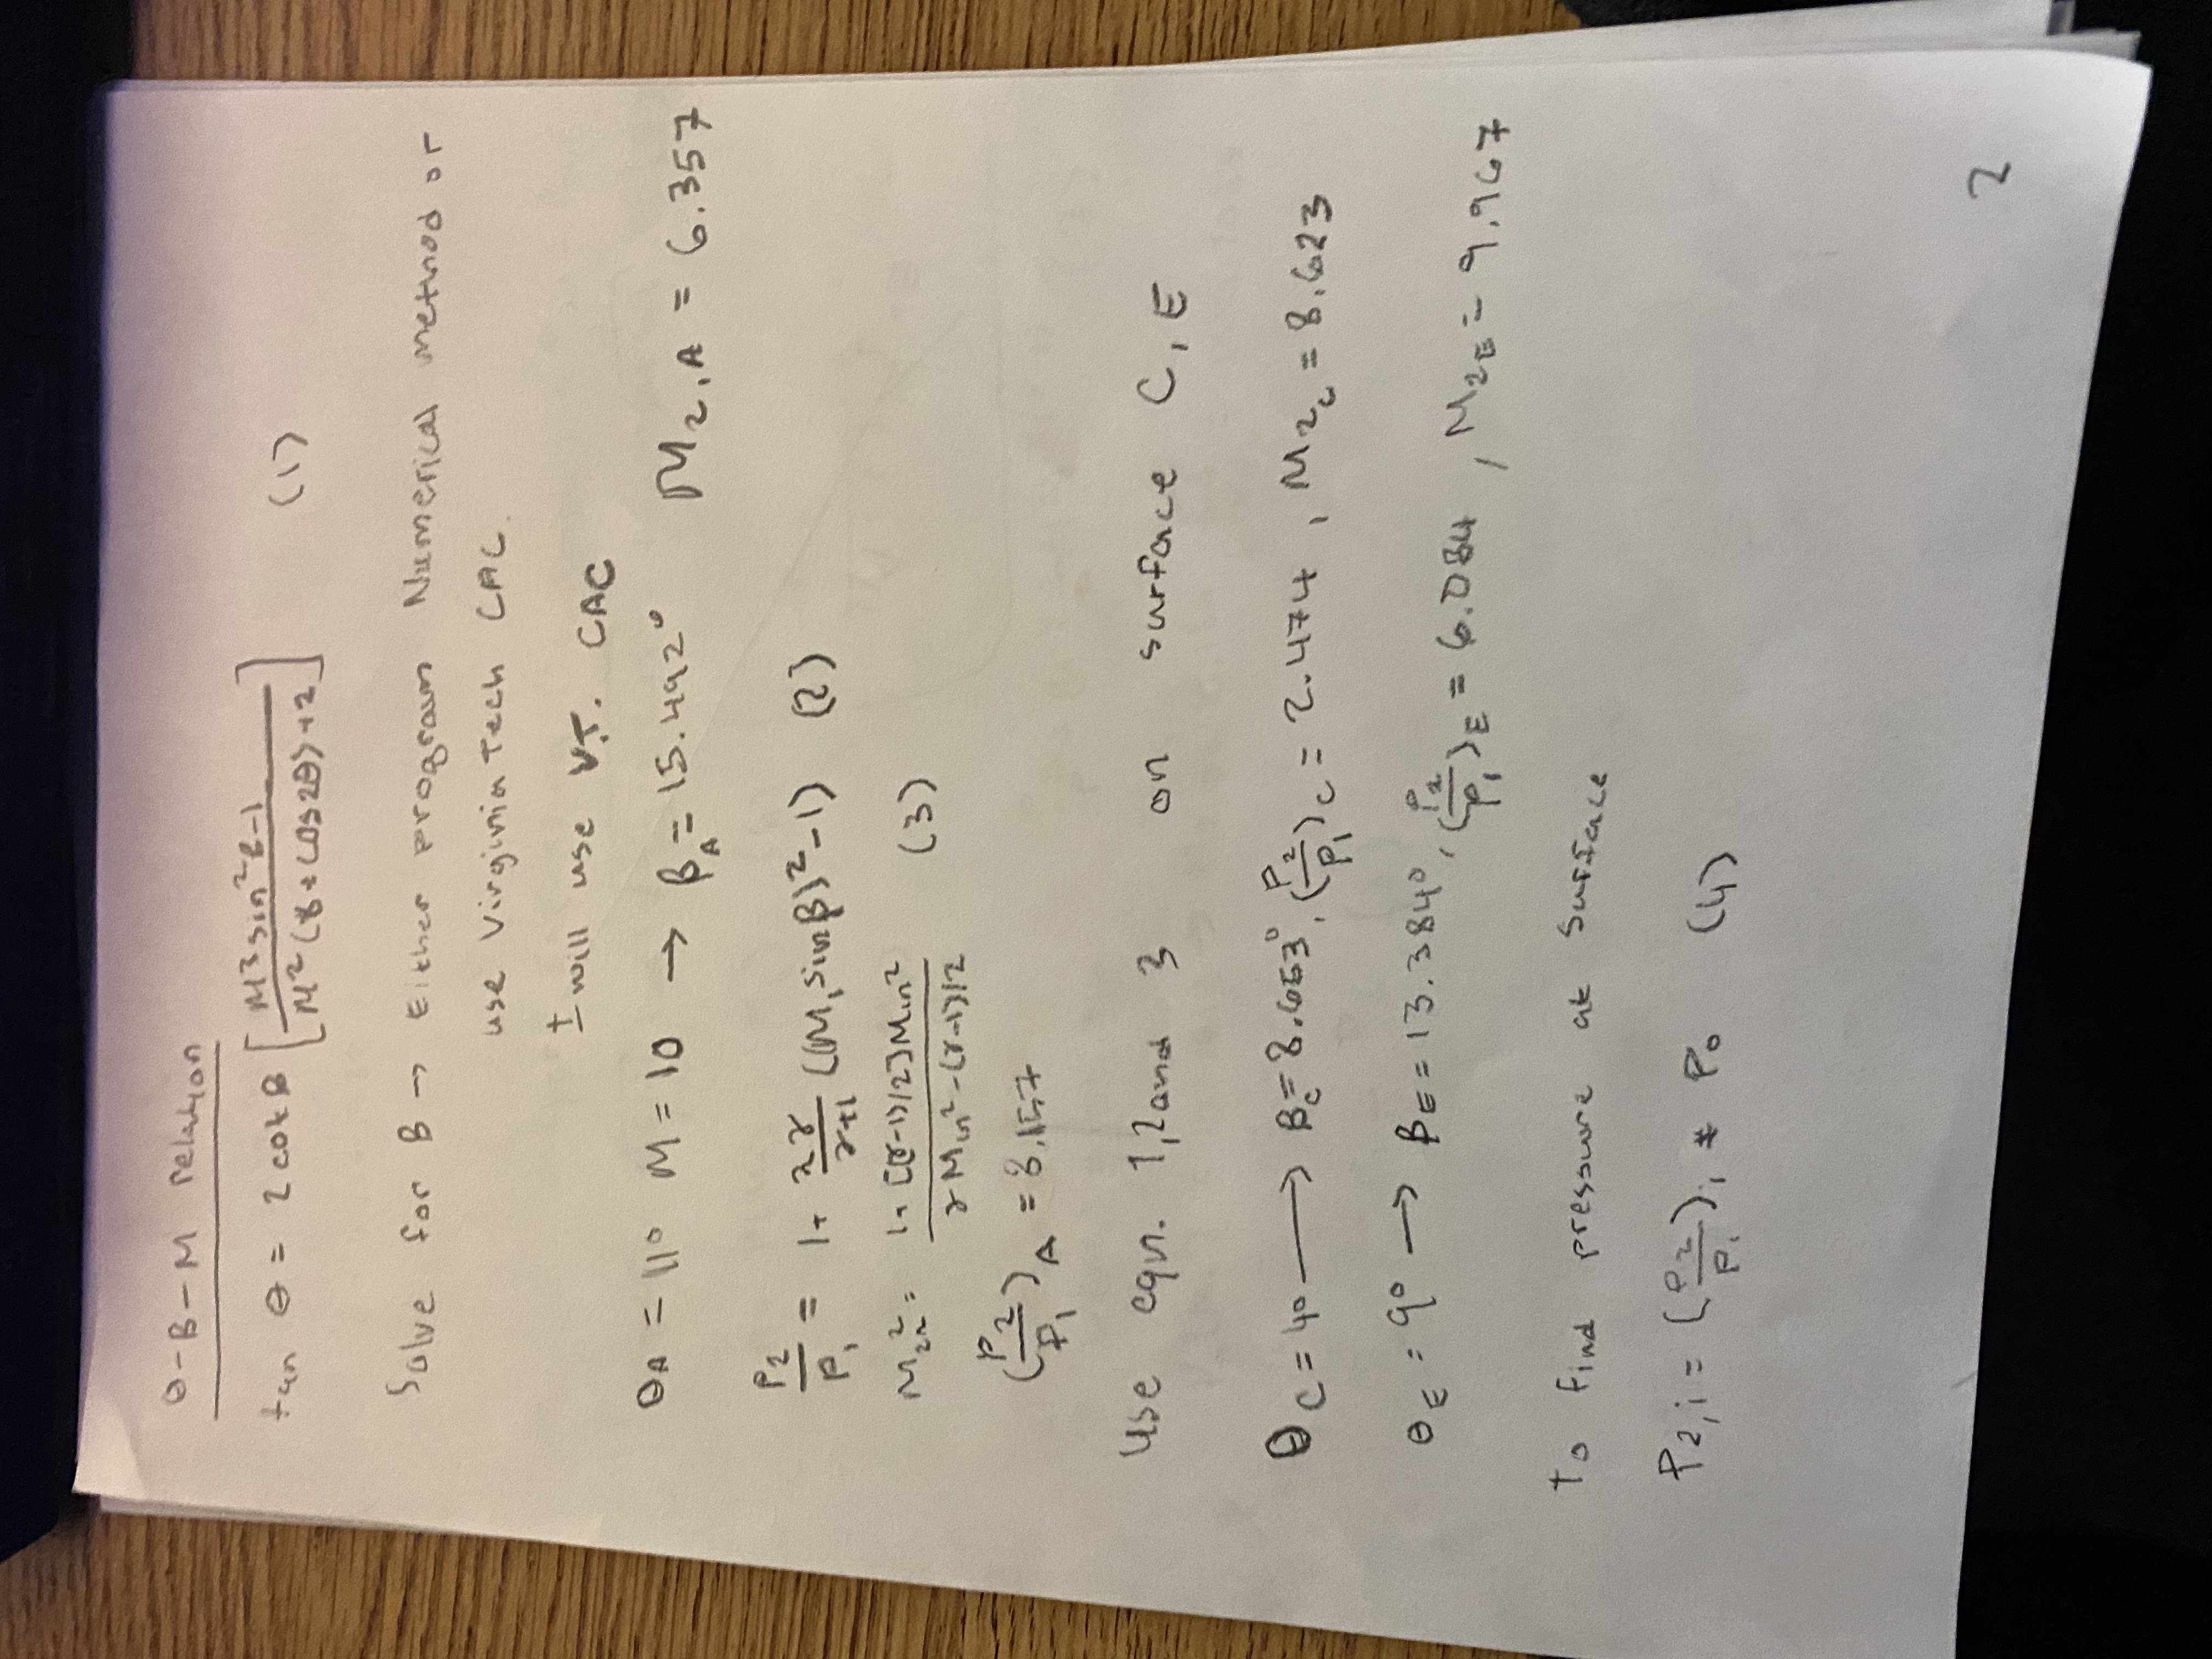 θ-B-M relation
tan θ = 2 cot B [ M²sin²B-1 / M²(γ+cos2θ)+2 ] (1)
Solve for B → Either program Numerical method or
use Virginia Tech CAC.
I will use V.T. CAC
θA = 11° M = 10 → βA = 15.492° M2,A = 6.357
P2/P1 = 1+ 2γ/γ+1 ((M1sinβ)²-1) (2)
M2n² = 1+[(γ-1)/2]M1n² / γM1n²-(γ-1)/2 (3)
(P2/P1)A = 8.157
Use eqn. 1,2 and 3 on surface C, E
θC = 4° → BC = 8.653°, (P2/P1)C = 2.474, M2C = 8.623
θE = 9° → βE = 13.384°, (P2/P1)E = 6.084, M2E = 9.967
To find pressure at surface
P2,i = (P2/P1)i * P0 (4)
2